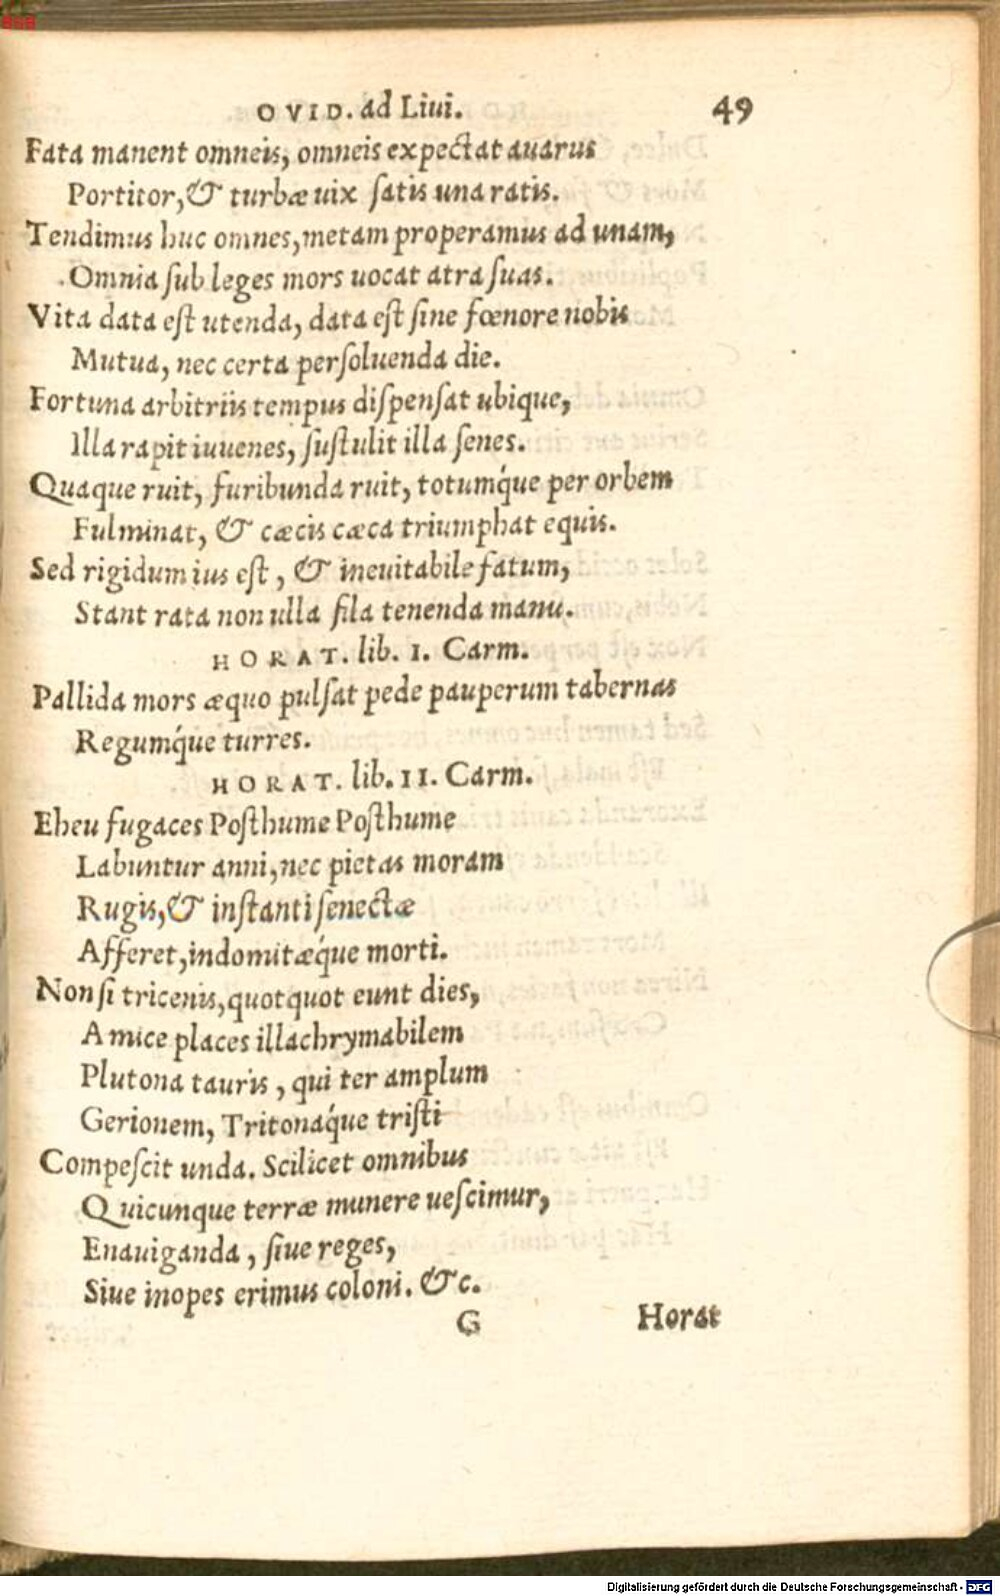 OVID. ad Liui. 49
Fata manent omneis, omneis expectat auarus
Portitor, & turbæ uix satis una ratis.
Tendimus huc omnes, metam properamus ad unam,
Omnia sub leges mors uocat atra suas.
Vita data est utenda, data est sine fœnore nobis
Mutua, nec certa persoluenda die.
Fortuna arbitriis tempus dispensat ubique,
Illa rapit iuuenes, sustulit illa senes.
Quaque ruit, furibunda ruit, totumq́ue per orbem
Fulminat, & cæcis cæca triumphat equis.
Sed rigidum ius est, & ineuitabile fatum,
Stant rata non ulla fila tenenda manu.
HORAT. lib. I. Carm.
Pallida mors æquo pulsat pede pauperum tabernas
Regumq́ue turres.
HORAT. lib. II. Carm.
Eheu fugaces Posthume Posthume
Labuntur anni, nec pietas moram
Rugis, & instanti senectæ
Afferet, indomitæq́ue morti.
Non si tricenis, quotquot eunt dies,
Amice places illachrymabilem
Plutona tauris, qui ter amplum
Gerionem, Tritonaq́ue tristi
Compescit unda. Scilicet omnibus
Quicunque terræ munere uescimur,
Enauiganda, siue reges,
Siue inopes erimus coloni. &c.
G Horat
Digitalisierung gefördert durch die Deutsche Forschungsgemeinschaft - DFG